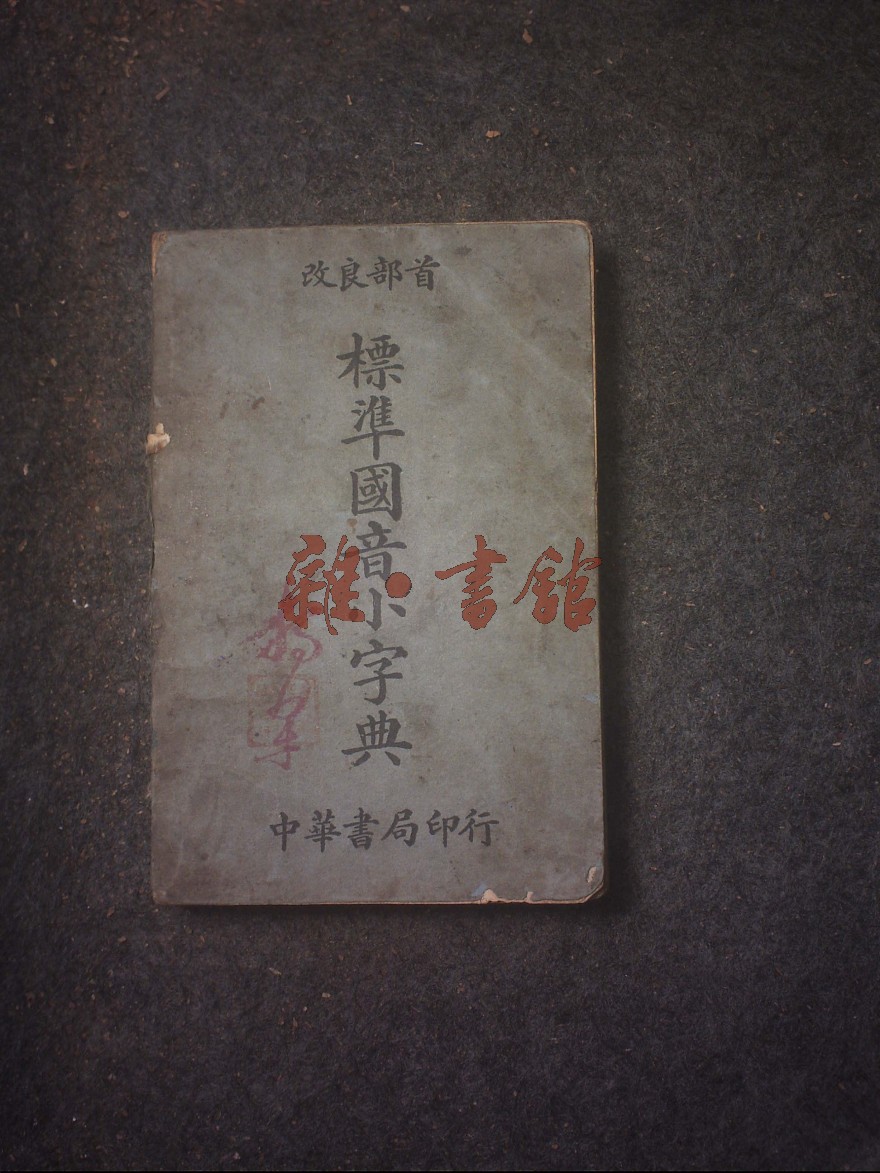 改良部首
標準國音小字典
中華書局印行
雜·書館